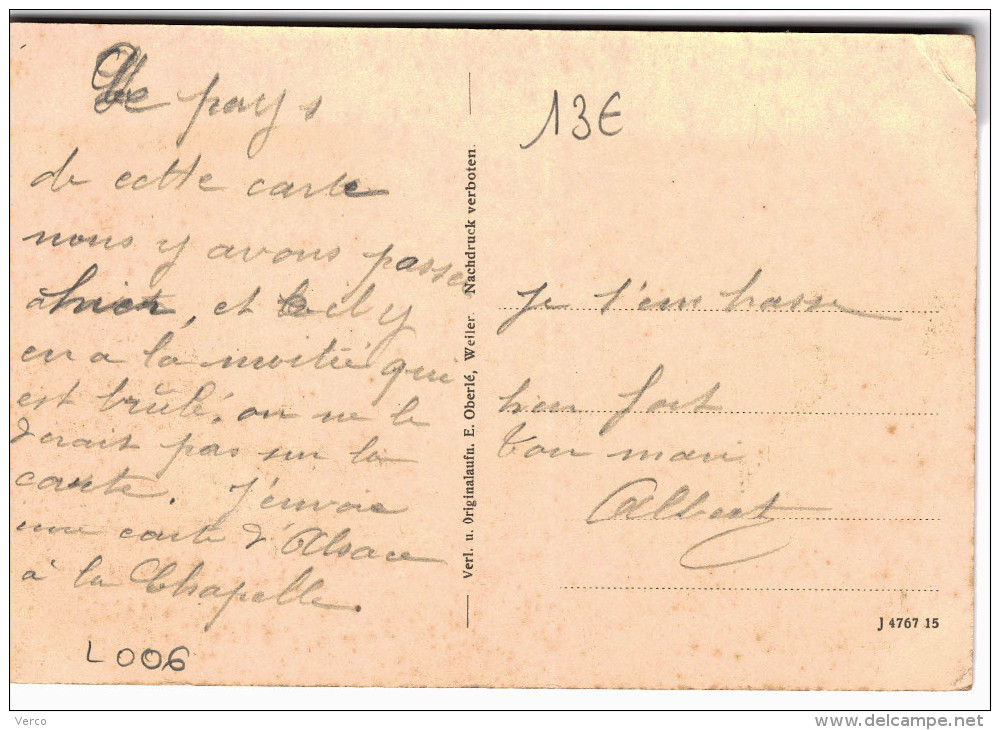 Le pays
de cette carte
nous y avons passé
hier, et il y
en a la moitié qui
est brûlé. on ne le
dirait pas sur la
carte. J'envoie
une carte d'Alsace
à la Chapelle.
L006
Verl. u. Originalaufn. E. Oberlé, Weiler Nachdruck verboten.
13€
Je t'embrasse
bien fort
Ton mari
Albert
J 4767 15
Verco
www.delcampe.net